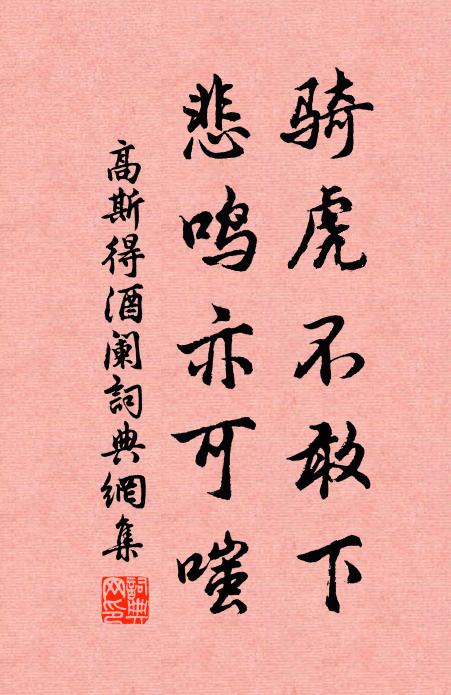 骑虎不敢下
悲鸣亦可嗤
高斯得酒阑詞典網集
詞典网印